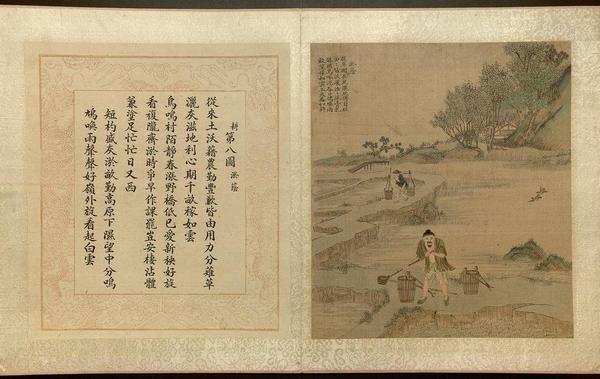 耕第八圖 淤蔭
從來土沃藉農勤豐歉皆由用力分薙草
灑灰滋地利心期千畝稼如雲
鳥鳴村陌靜春漲野橋低已愛新秧好旋
看複隴齊淤時爭早作課罷豈安棲沾體
兼塗足忙忙日又西
短杓盛灰淤畝勤高原下濕望中分鳴
鳩喚雨聲聲好嶺外旋看起白雲
淤蔭